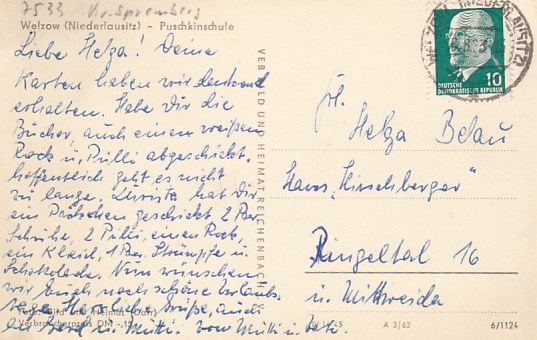 7533 Kr. Spremberg
Welzow (Niederlausitz) - Puschkinschule
Liebe Helga! Deine
Karten haben wir dankend
erhalten. Habe Dir die
Bücher, auch einen weißen
Rock u. Pulli abgeschickt,
hoffentlich geht es nicht
zu lange. Christa hat Dir
ein Päckchen geschickt 2 Paar
Schuhe, 2 Pulli, einen Rock,
ein Kleid, 1 Paar Strümpfe u.
Schokolade. Nun wünschen
wir Euch noch schöne Urlaubs-
tage. Herzliche Grüße, auch
an und Mutti. von Mutti u.
VEB BILD UND HEIMAT REICHENBACH
Verbraucherpreis DM -,15
A 3/62
6/1124
(NIEDERLAUSITZ)
DEUTSCHE
DEMOKRATISCHE REPUBLIK
10
Helga Belau
Haus "Hirschberger"
Ringeltal 16
ü. Mittweida